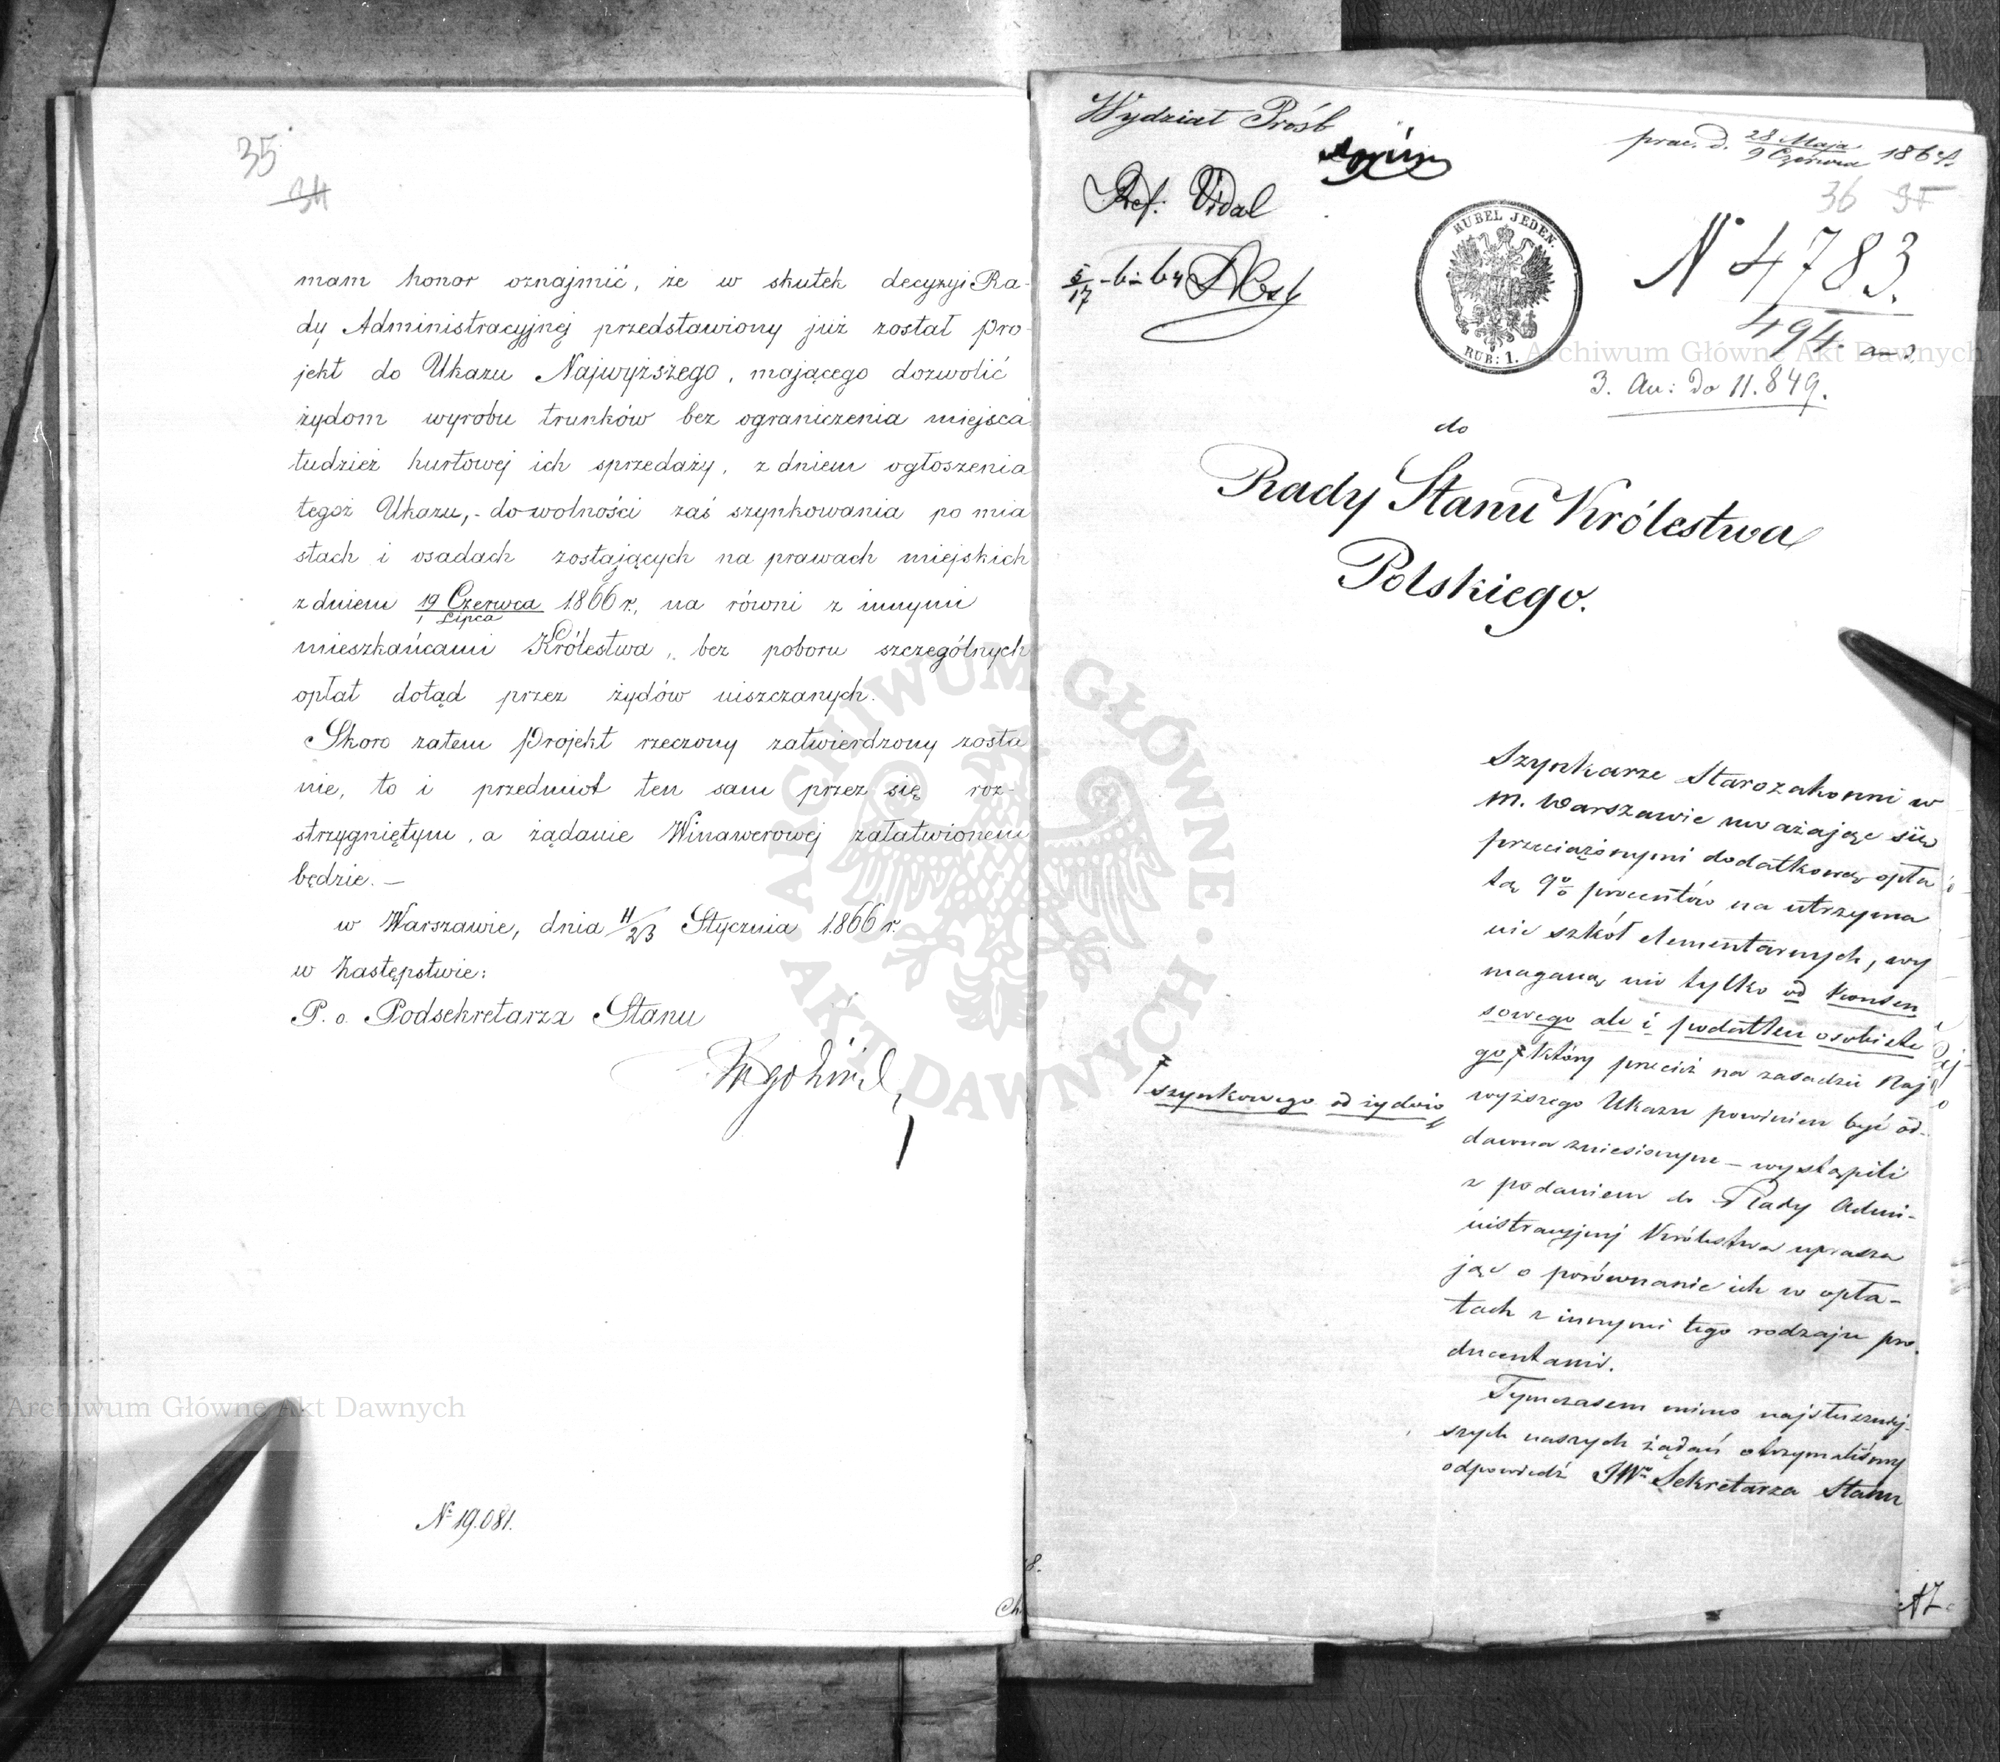 35
34
mam honor oznajmić, że w skutek decyzyi Ra-
dy Administracyjnej przedstawiony już został pro-
jekt do Ukazu Najwyższego, mającego dozwolić
żydom wyrobu trunków bez ograniczenia miejsca
tudzież hurtowej ich sprzedaży, z dniem ogłoszenia
tegoż Ukazu,- do wolności zaś szynkowania po mia
stach i osadach zostających na prawach miejskich
z dniem 19 Czerwca / 1 Lipca 1866 r, na równi z innymi
mieszkańcami Królestwa, bez poboru szczególnych
opłat dotąd przez żydów uiszczanych.
Skoro zatem projekt rzeczony zatwierdzony zosta
nie, to i przedmiot ten sam przez się roz-
strzygniętym, a żądanie Winawerowej załatwionem
będzie. —
w Warszawie, dnia 11/23 Stycznia 1866 r.
w Zastępstwie:
P. o. Podsekretarza Stanu
№ 19.081.
Wydział Próśb
Ref: Vidal
5/17 - 6 - 64
prac. d. 28 Maja / 9 Czerwca 1864.
36
RUBEL JEDEN.
RUB: 1.
N 4783.
494
3. Au: do 11.849.
do
Rady Stanu Królestwa
Polskiego.
Szynkarze Starozakonni w
m. Warszawie uważając się
przeciążonymi dodatkową opła
tą 9% procentów na utrzyma
nie szkół elementarnych, wy
maganą nie tylko od konsen
sowego ale i podatku osobiste
go, który przecież na zasadzie Naj
wyższego Ukazu powinien być od-
dawna zniesionym – wystąpili
z podaniem do Rady Admi-
nistracyjnej Królestwa uprasza
jąc o porównanie ich w opła-
tach z innymi tego rodzaju pro
ducentami.
Tymczasem mimo najsłuszniej-
szych naszych żądań otrzymaliśmy
odpowiedź JWo Sekretarza Stanu
szynkowego od żydów
Archiwum Główne Akt Dawnych
Archiwum Główne Akt Dawnych
ARCHIWUM GŁÓWNE AKT DAWNYCH